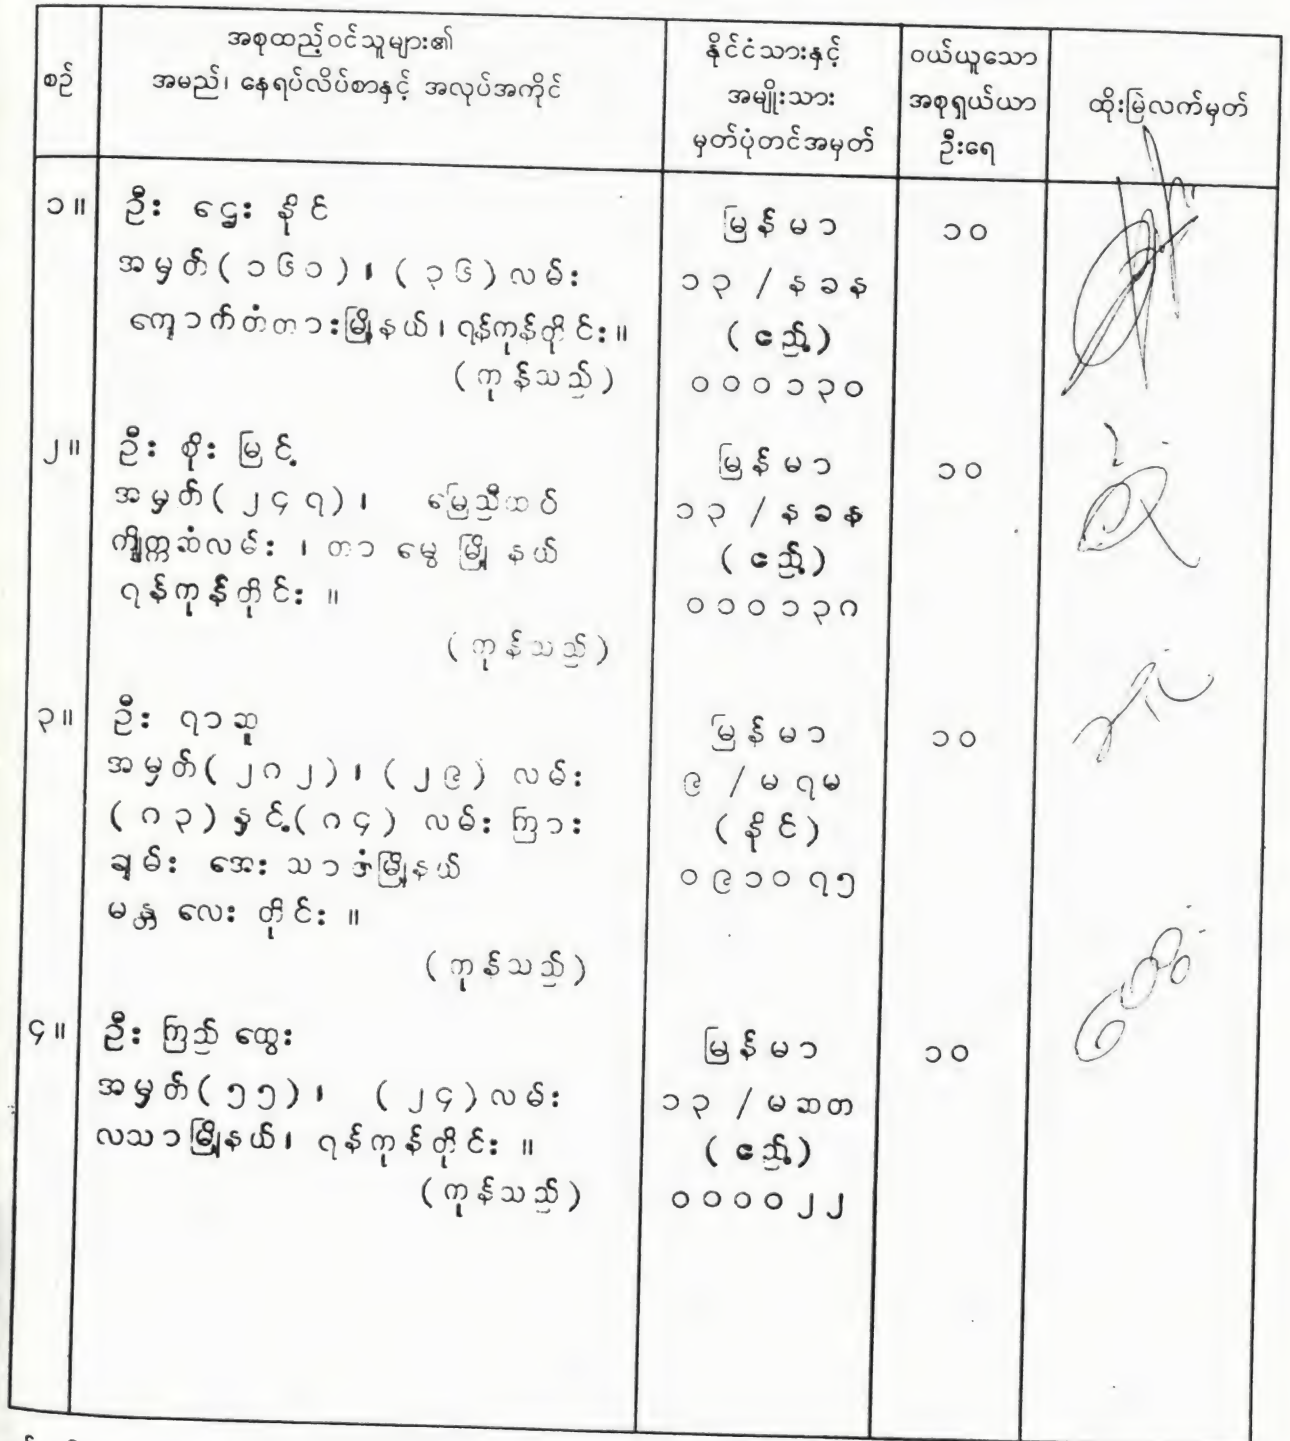 စဉ်
အစုထည့်ဝင်သူများ၏
အမည်၊ နေရပ်လိပ်စာနှင့် အလုပ်အကိုင်
နိုင်ငံသားနှင့်
အမျိုးသား
မှတ်ပုံတင်အမှတ်
ဝယ်ယူသော
အစုရှယ်ယာ
ဦးရေ
ထိုးမြဲလက်မှတ်
၁။
ဦး ဌေး နိုင်
အမှတ်(၁၆၁)၊ (၃၆)လမ်း
ကျောက်တံတားမြို့နယ်၊ ရန်ကုန်တိုင်း။
(ကုန်သည်)
မြန်မာ
၁၃ /နခန
(ဧည့်)
၀၀၀၁၃၀
၁၀
၂။
ဦး စိုး မြင့်
အမှတ်(၂၄၇)၊ မြေညီထပ်
ကျိုက္ကဆံလမ်း ၊ တာ မွေ မြို့ နယ်
ရန်ကုန်တိုင်း ။
(ကုန်သည်)
မြန်မာ
၁၃ /နခန
(ဧည့်)
၀၁၀၁၃၈
၁၀
၃။
ဦး ရာဆူ
အမှတ်(၂၈၂)၊ (၂၉) လမ်း
(၈၃)နှင့်(၈၄) လမ်း ကြား
ချမ်း အေး သာဇံမြို့နယ်
မန္တ လေး တိုင်း ။
(ကုန်သည်)
မြန်မာ
၉ /မရမ
(နိုင်)
၀၉၁၀၇၅
၁၀
၄။
ဦး ကြည် ထွေး
အမှတ်(၅၅)၊ (၂၄)လမ်း
လသာမြို့နယ်၊ ရန်ကုန်တိုင်း ။
(ကုန်သည်)
မြန်မာ
၁၃ /မဆတ
(ဧည့်)
၀၀၀၀၂၂
၁၀